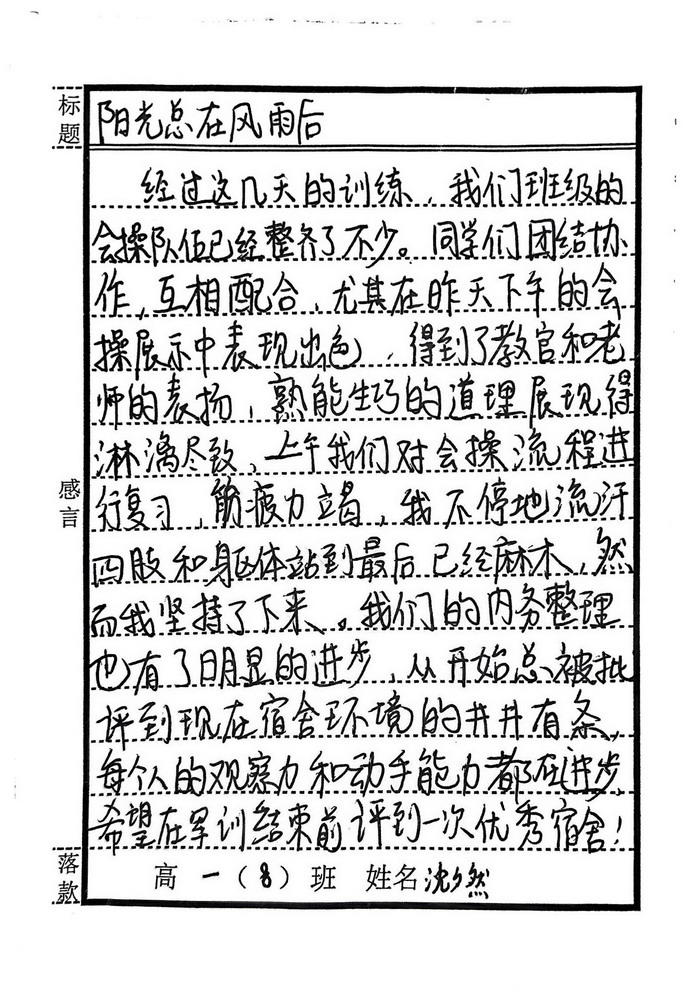 标题
阳光总在风雨后
经过这几天的训练，我们班级的
会操队伍已经整齐了不少。同学们团结协
作，互相配合，尤其在昨天下午的会
操展示中表现出色，得到了教官和老
师的表扬，熟能生巧的道理展现得
淋漓尽致，上午我们对会操流程进
感言
行复习，筋疲力竭，我不停地流汗
四肢和身躯体站到最后已经麻木，然
而我坚持了下来。我们的内务整理
也有了明显的进步，从开始总被批
评到现在宿舍环境的井井有条，
每个人的观察力和动手能力都在进步，
希望在军训结束前评到一次优秀宿舍！
落款
高一（8）班 姓名 沈夕然